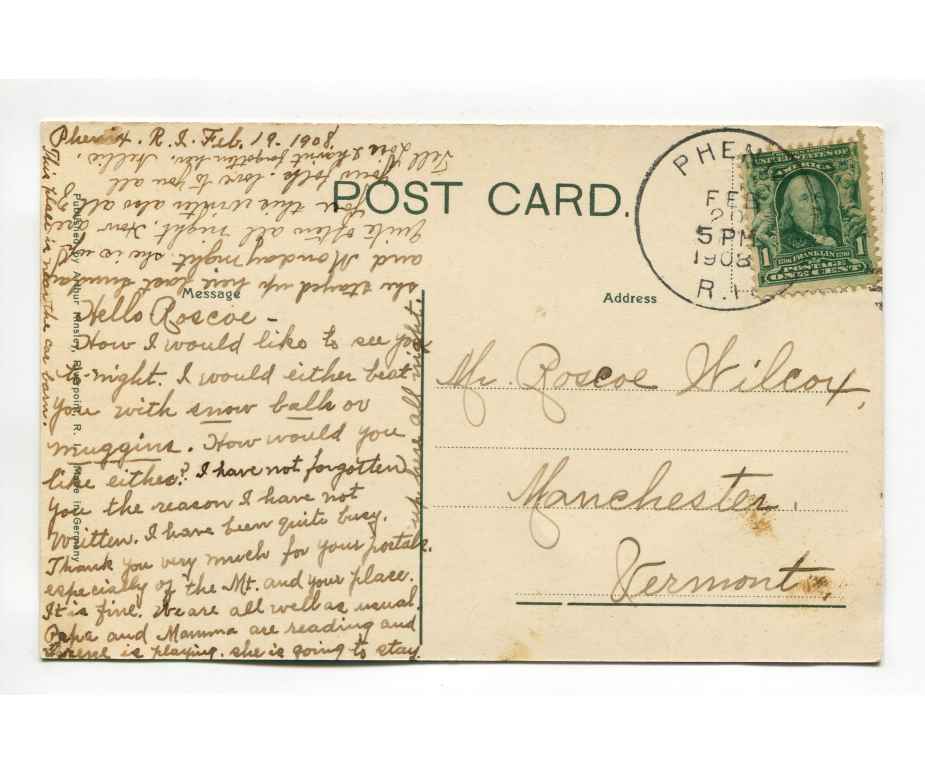 Phenix. R. I. Feb. 19. 1908
POST CARD.
Message
Address
Hello Roscoe -
How I would like to see you
to-night. I would either beat
you with snow balls or
muggins. How would you
like either? I have not forgotten
you the reason I have not
written. I have been quite busy.
Thank you very much for your postals.
especially of the Mt. and your place.
It is fine. We are all well as usual.
Papa and Mamma are reading and
Irene is playing. she is going to stay
up here all night.
she stayed up here last Sunday
and Monday night she is up
quite often all night. How are
you this winter also all
your folks. love to you all
Nellie.
Tell Lois I havnt forgotten her.
This place is near the car barn.
Published by Arthur Kinsley, R. I. Made in Germany
Mr. Roscoe Wilcox,
Manchester.
Vermont.
PHEN
FEB
20
5 PM
1908
R.I.
UNITED STATES OF
AMERICA
1 1
1706 FRANKLIN 1790
POSTAGE
ONE CENT